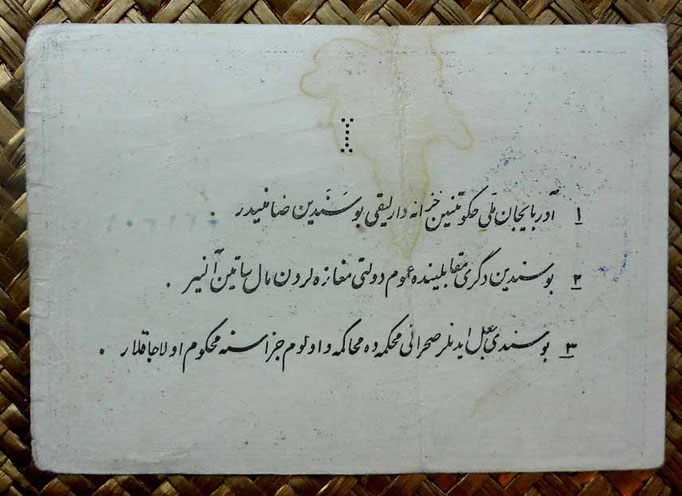 ۱ آذربایجان ملی حکومتنین خزانه دارلیقی بو سَنَدین ضامنیدر .
۲ بو سندین دگری مقابلینده عموم دولتی مغازه لردن مال ساتین آلنیر .
۳ بو سندی جعل ایدنلر صحرائی محکمه ده محاکمه و اولوم جزاسنه محکوم اولاجاقلار .